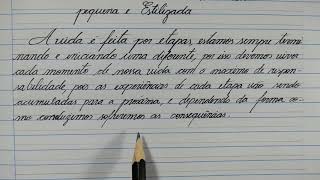 pequena e Estilizada
A vida é feita por etapas, estamos sempre termi
nando e iniciando uma diferente, por isso devemos viver
cada momento de nossa vida com o maximo de respon-
sabilidade, pois as experiências de cada etapa vão sendo
acumuladas para a proxima, e dependendo da forma co-
mo conduzimos sofreremos as consequências.